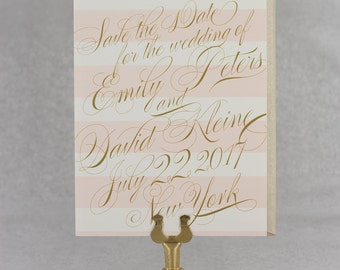 Save the Date
for the wedding of
Emily Peters
and
David Kleine
July 22 2017
New York